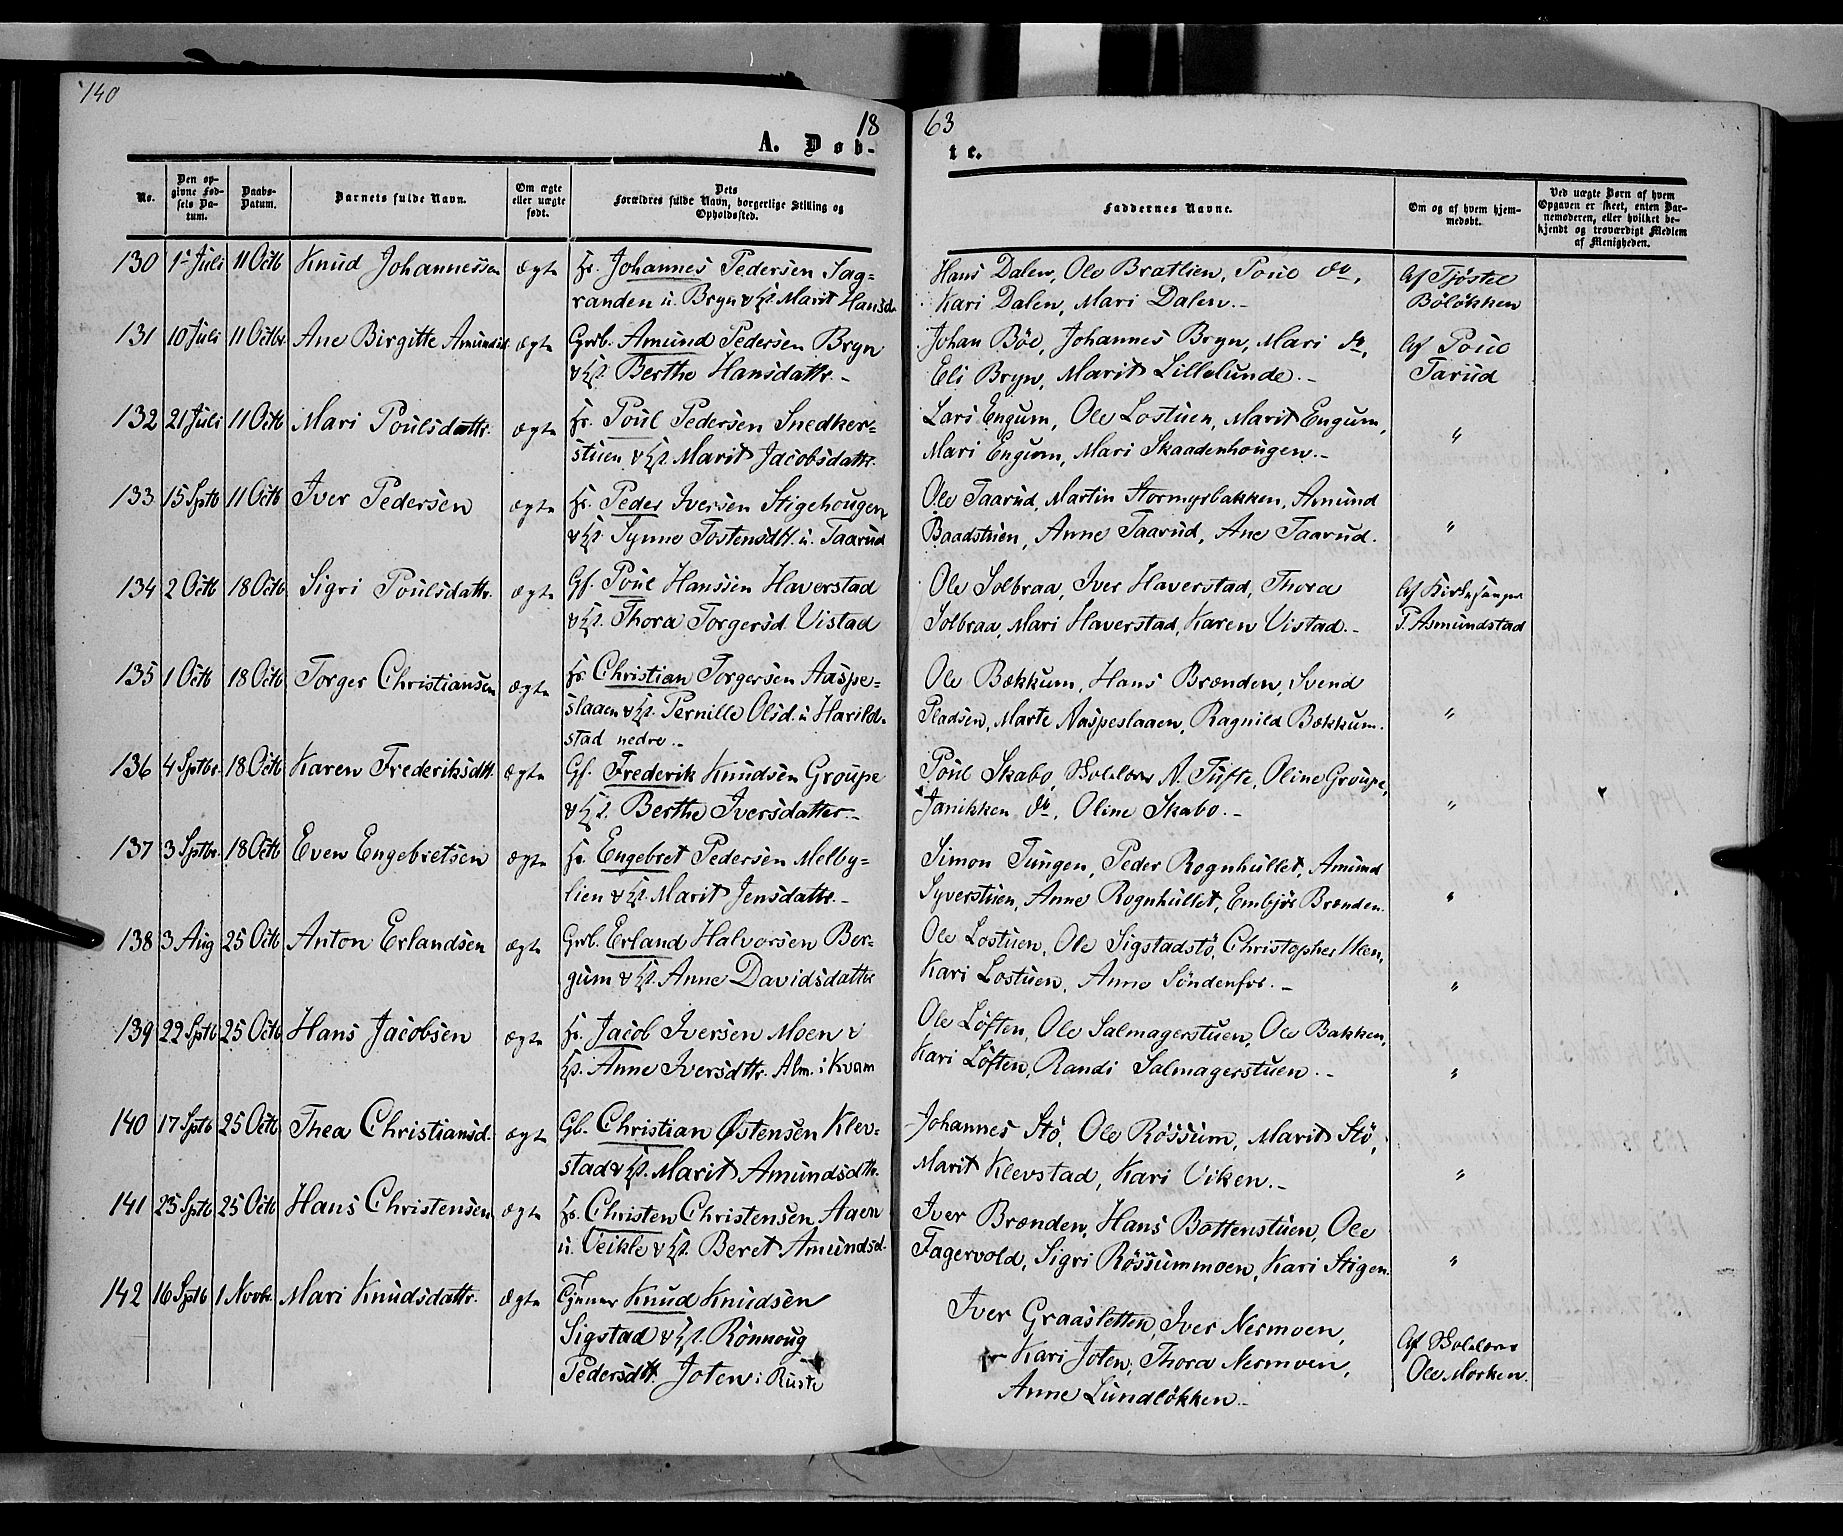 140
18 63
A. Døb- te.
No.
Den opgivne Fødsels Datum.
Daabs-Datum.
Barnets fulde Navn.
Om ægte eller uægte født.
Dets Forældres fulde Navn, borgerlige Stilling og Opholdssted.
Faddernes Navne.
Om og af hvem hjemmedøbt.
Ved uægte Børn af hvem Opgaven er skeet, enten Barnemoderen, eller hvilket bekjendt og troværdigt Medlem af Menigheden.
130 1ste Juli 11 Octb Knud Johannessen ægte Hr. Johannes Pedersen Sag= Hans Dalen, Ole Bratlien, Poul do, Af Tjøstel
randen u. Bryn & Hst. Marit Hansd. Kari Dalen, Mari Dalen.- Böløkken
131 10 Juli 11 Octbr. Ane Birgitte Amundsd. ægte Grb. Amund Pedersen Bryn Johan Böe, Johannes Bryn, Mari do, Af Poul
& Hst. Berthe Hansdattr.- Eli Bryn, Marit Lillelunde.- Tarud
132 21 Juli 11 Octb Mari Poulsdattr. ægte Hr. Poul Pedersen Snedker= Lars Engum, Ole Lostuen, Marit Engum, "
stuen & Hst. Marit Jacobsdattr. Mari Engum, Mari Skaadenhougen.-
133 15 Sptb 11 Octb Iver Pedersen ægte Hr. Peder Iversen Stigehougen Ole Taarud, Martin Stormyrbakken, Amund
& Hst. Synne Tostensdtt. u. Taarud Baadstuen, Anne Taarud, Ane Taarud. "
134 2 Octb 18 Octb Sigri Poulsdattr. ægte Gf. Poul Hanssen Haverstad Ole Solbraa, Iver Haverstad, Thora Af Kirkesanger
& Hst. Thora Torgersd. Vistad Solbraa, Mari Haverstad, Karen Vistad.- P. Asmundstad
135 1 Octb 18 Octb Torger Christiansen ægte Hr. Christian Torgersen Aaspe= Ole Bækkum, Hans Brænden, Svend
slaaen & Hst. Pernille Olsd. u Harild= Pladsen, Marte Aaspeslaaen, Ragnild Bækkum. "
stad nedre.-
136 4 Sptbr. 18 Octb Karen Frederiksdtt. ægte Gf. Frederik Knudsen Groupe Poul Skabo, A. Tufte, Oline Groupe,
& Hst. Berthe Iversdatter.- Janikken do, Oline Skabo.- "
137 3 Sptbr. 18 Octb Even Engebretsen ægte Hr. Engebret Pedersen Melby= Simon Tungen, Peder Rognhullet, Amund
lien & Hst. Marit Jensdattr.- Syverstuen, Anne Rognhullet, Embjör Brænden. "
138 3 Aug 25 Octb Anton Erlandsen ægte Grb. Erland Halvorsen Ber= Ole Lostuen, Ole Sigstadstö, Christopher Ulen,
gum & Hst. Anne Davidsdatter Kari Lostuen, Anne Söndenfor.- "
139 22 Sptb 25 Octb Hans Jacobsen ægte Hr. Jacob Iversen Moen & Ole Löften, Ole Salmagerstuen, Ole Bakken,
Hst. Anne Iversdttr. Alm. i Kvam Kari Löften, Randi Salmagerstuen.- "
140 17 Sptb 25 Octb Thea Christiansd. ægte Gb. Christian Østensen Klev= Johannes Stö, Ole Rössum, Marit Stö,
stad & Hst. Marit Amundsdtr. Marit Klevstad, Kari Viken.- "
141 23 Sptb 25 Octb Hans Christensen ægte Hr. Christen Christensen Aaen Iver Brænden, Hans Bottenstuen, Ole
u. Veikle & Hst. Beret Amundsd. Fagervold, Sigri Rössummoen, Kari Stigen. "
142 16 Sptb 1 Novbr. Mari Knudsdattr. ægte Tjener Knud Knudsen Iver Graasletten, Iver Nermoen,
Sigstad & Hst. Rönnoug Kari Joten, Thora Nermoen, Af
Pedersdtt. Joten i Ruste Anne Lundløkken.- Ole Morken.